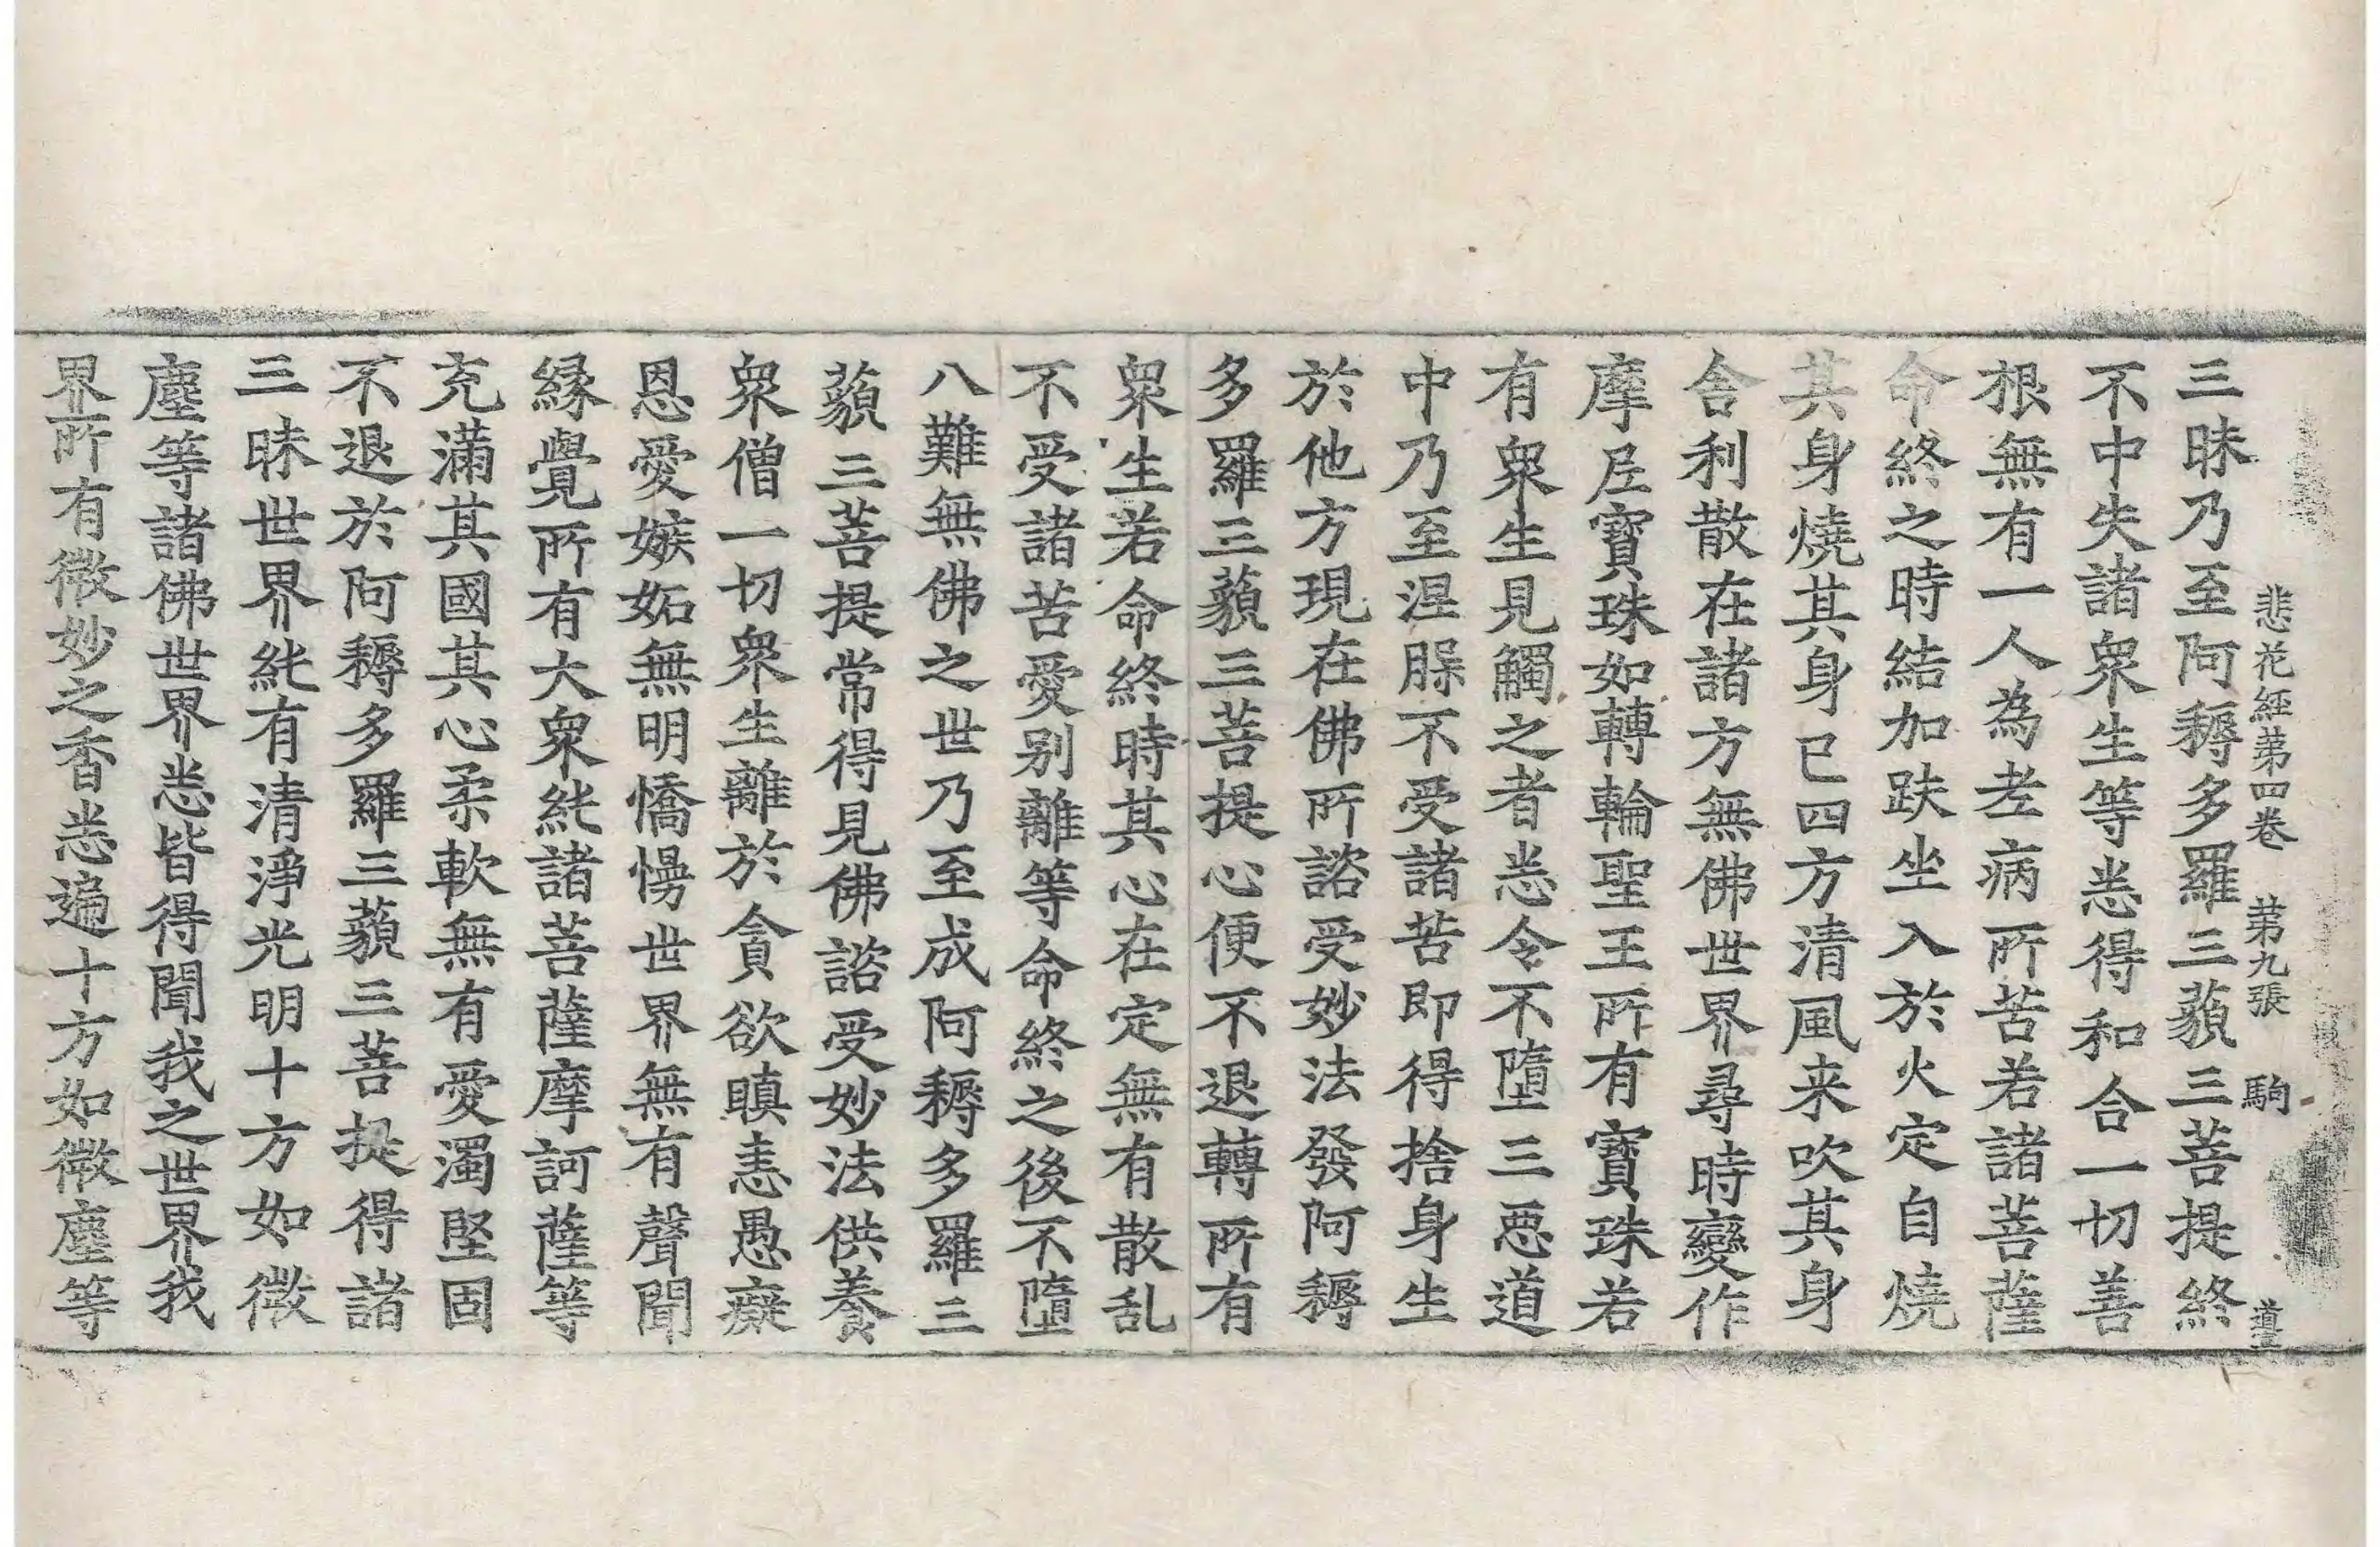 悲花經第四卷 第九張 駒
三昧乃至阿耨多羅三藐三菩提終
不中失諸衆生等悉得和合一切善
根無有一人為老病所苦若諸菩薩
命終之時結加趺坐入於火定自燒
其身燒其身已四方清風来吹其身
舎利散在諸方無佛世界尋時變作
摩尼寶珠如轉輪聖王所有寶珠若
有衆生見觸之者悉令不墮三惡道
中乃至涅槃不受諸苦即得捨身生
於他方現在佛所諮受妙法發阿耨
多羅三藐三菩提心便不退轉所有
衆生若命終時其心在定無有散乱
不受諸苦愛别離等命終之後不墮
八難無佛之世乃至成阿耨多羅三
藐三菩提常得見佛諮受妙法供養
衆僧一切衆生離於貪欲瞋恚愚癡
恩愛嫉妬無明憍慢世界無有聲聞
縁覺所有大衆純諸菩薩摩訶薩等
充滿其國其心柔軟無有愛濁堅固
不退於阿耨多羅三藐三菩提得諸
三昧世界純有清淨光明十方如微
塵等諸佛世界悉皆得聞我之世界我
界所有微妙之香悉遍十方如微塵等